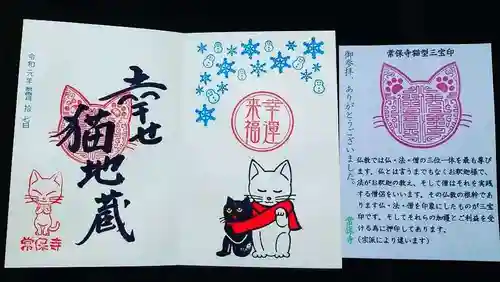 令和元年 拾弐月 拾七日
幸せ
猫地蔵
常保寺
幸運
来福
常保寺猫型三宝印
御参拝、ありがとうございました。
常保寺
仏教では仏・法・僧の三位一体を最も尊び
ます。仏とは言うまでもなくお釈迦様で、
法がお釈迦の教え、そして僧はそれを実践
する僧侶をいいます。その仏教の根幹であ
ります仏・法・僧を印象にしたものが三宝
印です。そしてそれらの加護とご利益を受
ける為に押印してあります。
(宗派により違います)